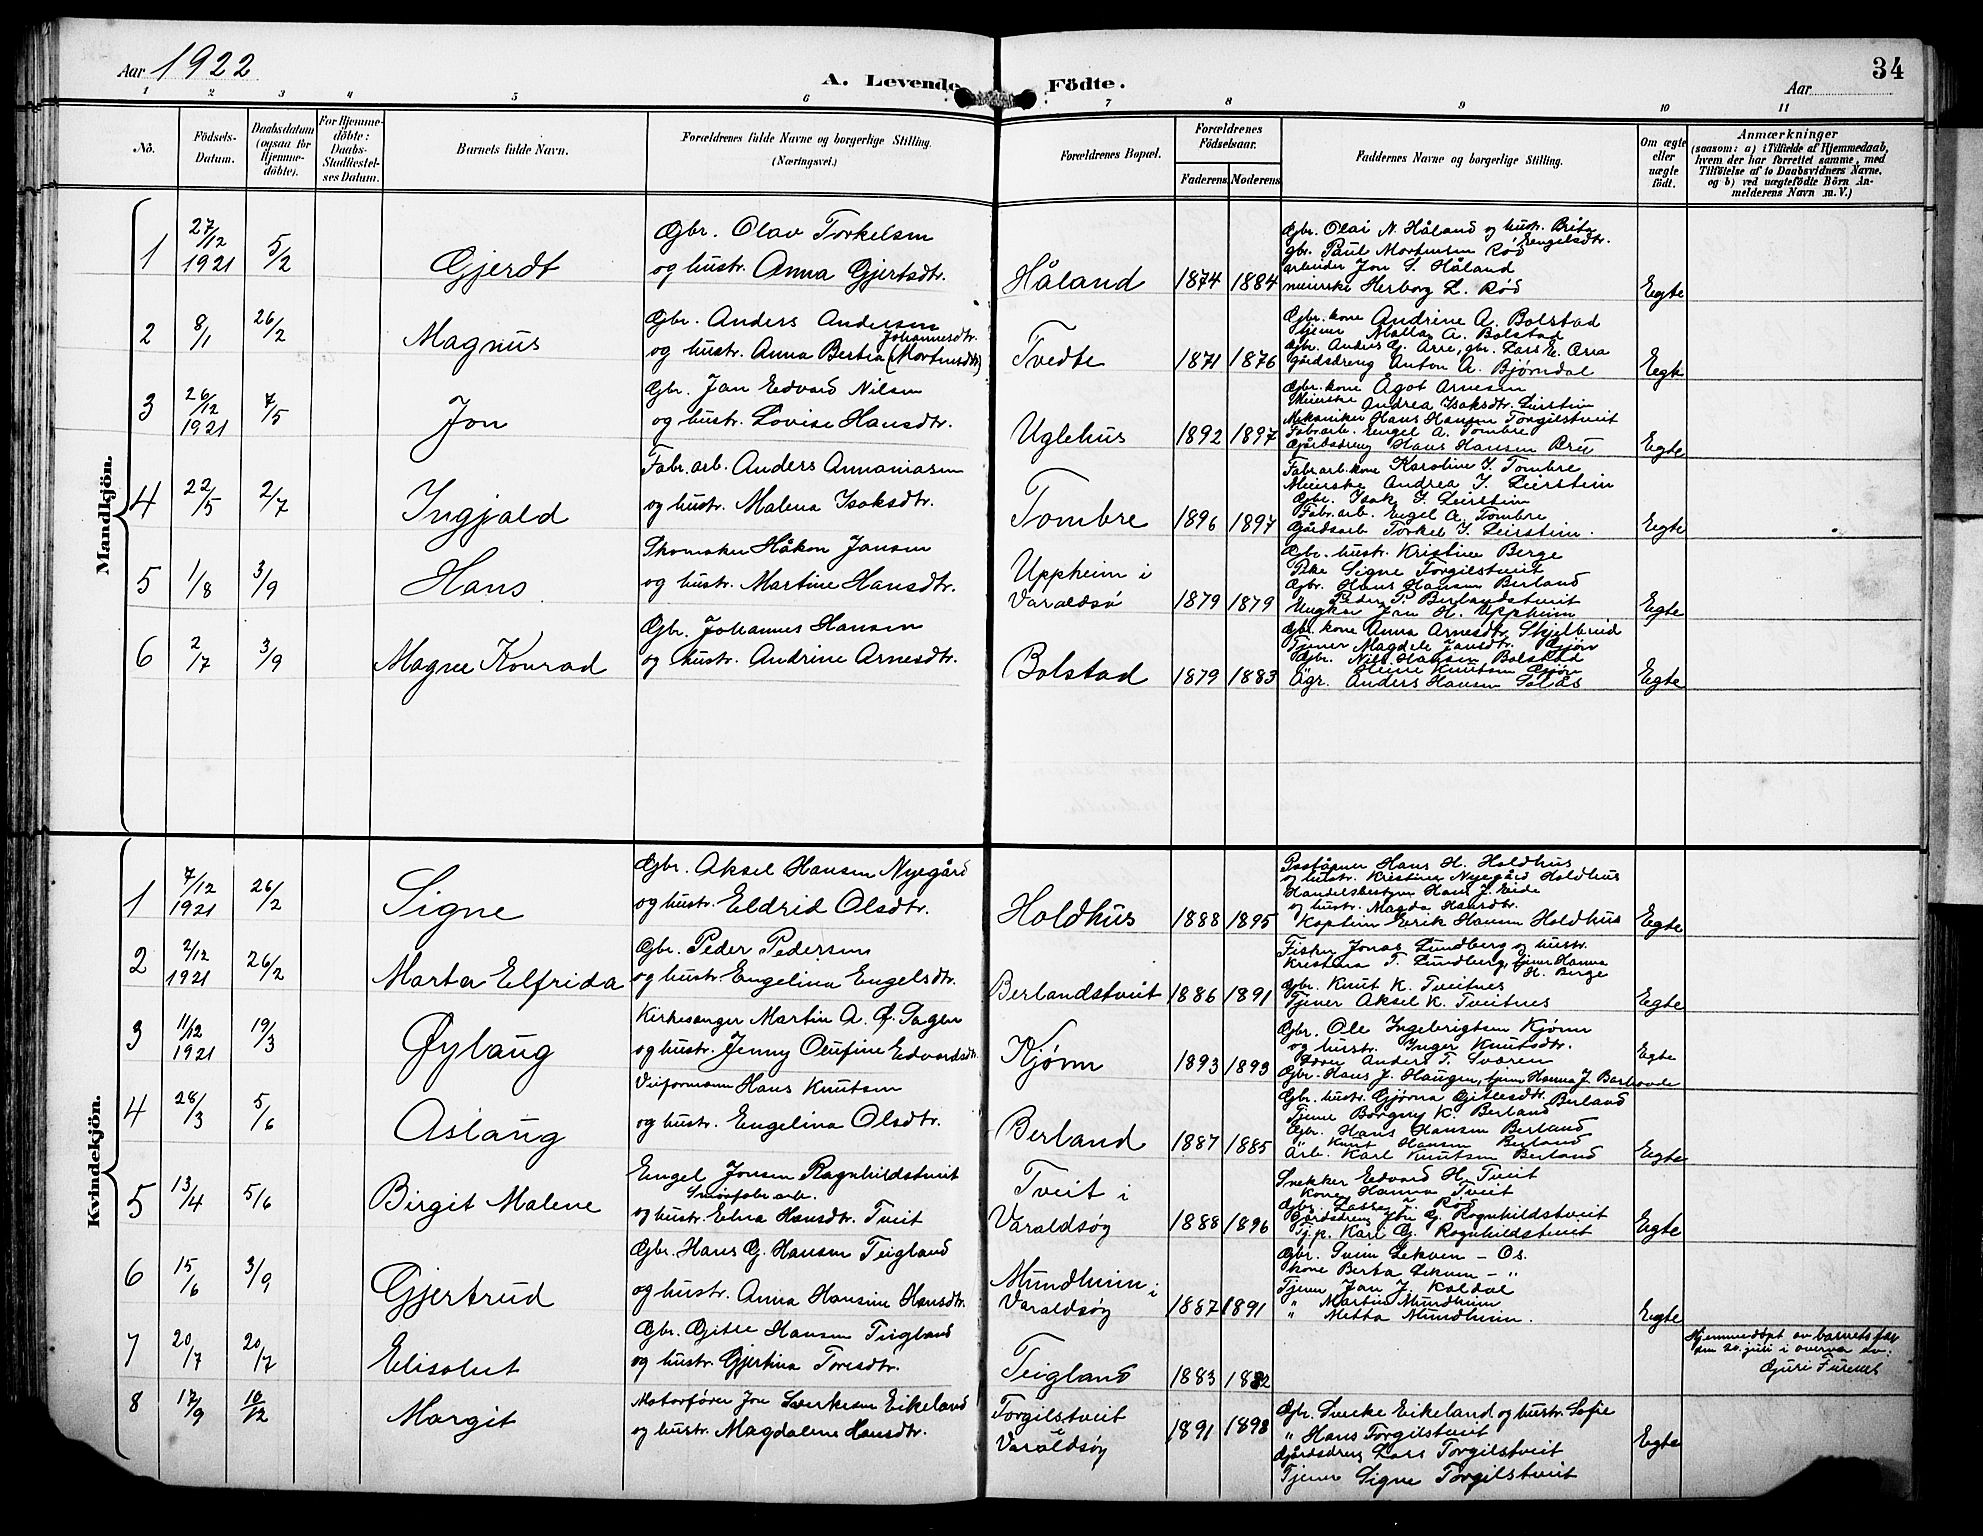 Aar 1922
A. Levende Födte.
34
Aar
1 2 3 4 5 6 7 8 9 10 11
No.
Födsels-Datum.
Daabsdatum (ogsaa for Hjemme-döbte).
For Hjemme-döbte: Daabs-Stadfæstel-ses Datum.
Barnets fulde Navn.
Forældrenes fulde Navne og borgerlige Stilling. (Næringsvei.)
Forældrenes Bopæl.
Forældrenes Födselsaar.
Faderens. Moderens.
Faddernes Navne og borgerlige Stilling.
Om ægte eller uægte födt.
Anmærkninger
(saasom: a) i Tilfælde af Hjemmedaab,
hvem der har forrettet samme, med
Tilföielse af to Daabsvidners Navne,
og b) ved uægtefödte Börn An-
melderens Navn m. V.)
Mandkjön.
1 27/12 1921 5/2 Gjerdt
Gbr. Olav Torkelsen
og hustr. Anna Gjertsdtr.
Håland 1874 1884
Gbr. Olai N. Håland og hustr. Brita Engelsdtr.
gbr. Paul Mortensen Röd
arbeider Jon S. Håland
meierske Herborg L. Röd
Egte
2 8/1 26/2 Magnus
Gbr. Anders Andersen
og hustr. Anna Bertha Johannesdtr. (Mortensdtr)
Tvedte 1871 1876
Gbr. kone Andrine A. Bolstad
tjener A. Bolstad
gårdsdreng Anton A. Bjørndal
Egte
3 26/12 1921 7/5 Jon
Gbr. Jan Edvard Nilsen
og hustr. Lovise Hansdtr.
Uglehus 1892 1897
Gbr. kone Ågot Arnesen
Meierske Andrea Isaksdtr. Leirstein
Mekaniker Hans Hansen Torgilstveit
Fabr.arb. Engel A. Tombre
Gårdsdreng Hans Hansen
Egte
4 22/5 2/7 Ingjald
Fabr. arb. Anders Annaniasen
og hustr. Malena Isaksdtr.
Tombre 1896 1897
Fabr. arb. kone Karoline I. Tombre
Meierske Andrea I. Leirstein
Gbr. Isak I. Leirstein
Fabr. arb. Engel A. Tombre
Gårdsarb Torkel I. Leirstein.
Egte
5 1/8 3/9 Hans
Skomaker Håkon Jansen
og hustr. Martine Hansdtr.
Uppheim i Varaldsø 1879 1879
Gbr. hustr. Kristine Berge
Pike Signe Torgilstveit
Gbr. Hans Hansen Berland
Peder P. Berlandstveit
Ungkar Jan H. Uppheim
Egte
6 2/7 3/9 Magne Konrad
Gbr. Johannes Hansen
og hustr. Andrine Arnesdtr.
Bolstad 1879 1883
Gbr. kone Anna Arnesdtr. Skjelbreid
Tjener Magdele Jansdtr. Gjön
Gbr. Nils Hansen Bolstad
Heine Knutsen Gjøn
Anders Hansen
Egte
Kvindekjön.
1 7/12 1921 26/2 Signe
Gbr. Aksel Hansen Nyegård
og hustr. Eldrid Olsdtr.
Holdhus 1888 1895
Poståpner Hans H. Holdhus
og hustr. Kristina Nyegård Holdhus
Handelsbestyrer Hans J. Eide
og hustr. Magda Hansdtr.
Kaptein Erik Hansen Holdhus
Egte
2 2/12 1921 26/2 Marta Elfrida
Gbr. Peder Pedersen
og hustr. Engelina Engelsdtr.
Berlandstveit 1886 1891
Fisker Jonas Lundberg og hustr.
Kristina T. Lundberg, tjener Hanna H. Berge
Gbr. Knut K. Tveitnes
Tjener Aksel K. Tveitnes
Egte
3 11/12 1921 19/3 Øylaug
Kirkesanger Martin A. Ø. Sagen
og hustr. Jenny Olufine Edvardsdtr.
Kjønn 1893 1893
Gbr. Ole Ingebrigtsen Kjønn
og hustr. Inger Knutsdtr.
Lærer Anders T. Svaren
Gbr. Hans J. Haugen, tjener Hanna J.
Egte
4 28/3 5/6 Aslaug
Hans Knutsen
og hustr. Engelina Olsdtr.
Berland 1887 1885
Gbr. hustr. Gjørna Gitlesdtr. Berland
Tjener Borgny K. Berland
Gbr. Hans Hansen Berland
" Knut Hansen Berland
Arb. Karl Knutsen Berland
Egte
5 13/4 5/6 Birgit Malene
Engel Jonsen Ragnhildstveit
og hustr. Edna Hansdtr. Tveit
Tveit i Varaldsøy 1888 1896
Snekker Edvard H. Tveit
Kone Hanna Tveit
Gbr. Lasse J. Röd
G. Ragnhildstveit
Tj.p. Kari G. Ragnhildstveit
Egte
6 15/6 3/9 Gjertrud
Gbr. Hans G. Hansen Teigland
og hustr. Anna Hansine Hansdtr.
Mundheim i Varaldsøy 1887 1891
Gbr. Svein Lekven - Os.
kone Berta Lekven - "
Tjener Jan J. Koldal
" Martin Mundheim
" Metta Mundheim.
Egte
7 20/7 20/7 Elisabet
Gbr. Gitle Hansen Teigland
og hustr. Gjertina Toresdtr.
Teigland 1883 1882
Hjemmedøpt av barnets far
den 20. juli i overvær av:
Guri
8 17/9 10/12 Margit
Motorfører Jon Sverkesen Eikeland
og hustr. Magdalene Hansdtr.
Torgilstveit i Varaldsøy 1891 1898
Gbr. Sverke Eikeland og hustr. Sofie
" Hans Torgilstveit
Gårdsdreng Lars Torgilstveit
Tjener Signe Torgilstveit
Egte